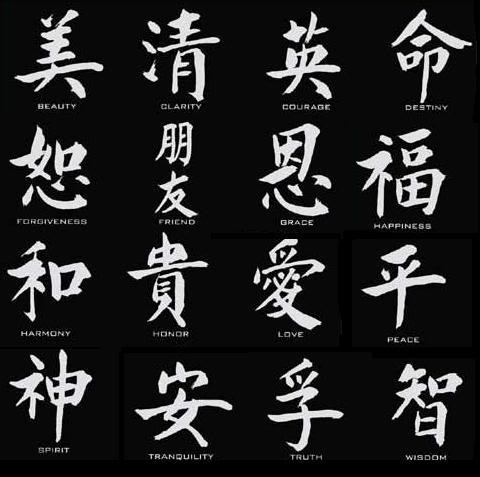 美 清 英 命
BEAUTY CLARITY COURAGE DESTINY
恕 朋友 恩 福
FORGIVENESS FRIEND GRACE HAPPINESS
和 貴 愛 平
HARMONY HONOR LOVE PEACE
神 安 孚 智
SPIRIT TRANQUILITY TRUTH WISDOM